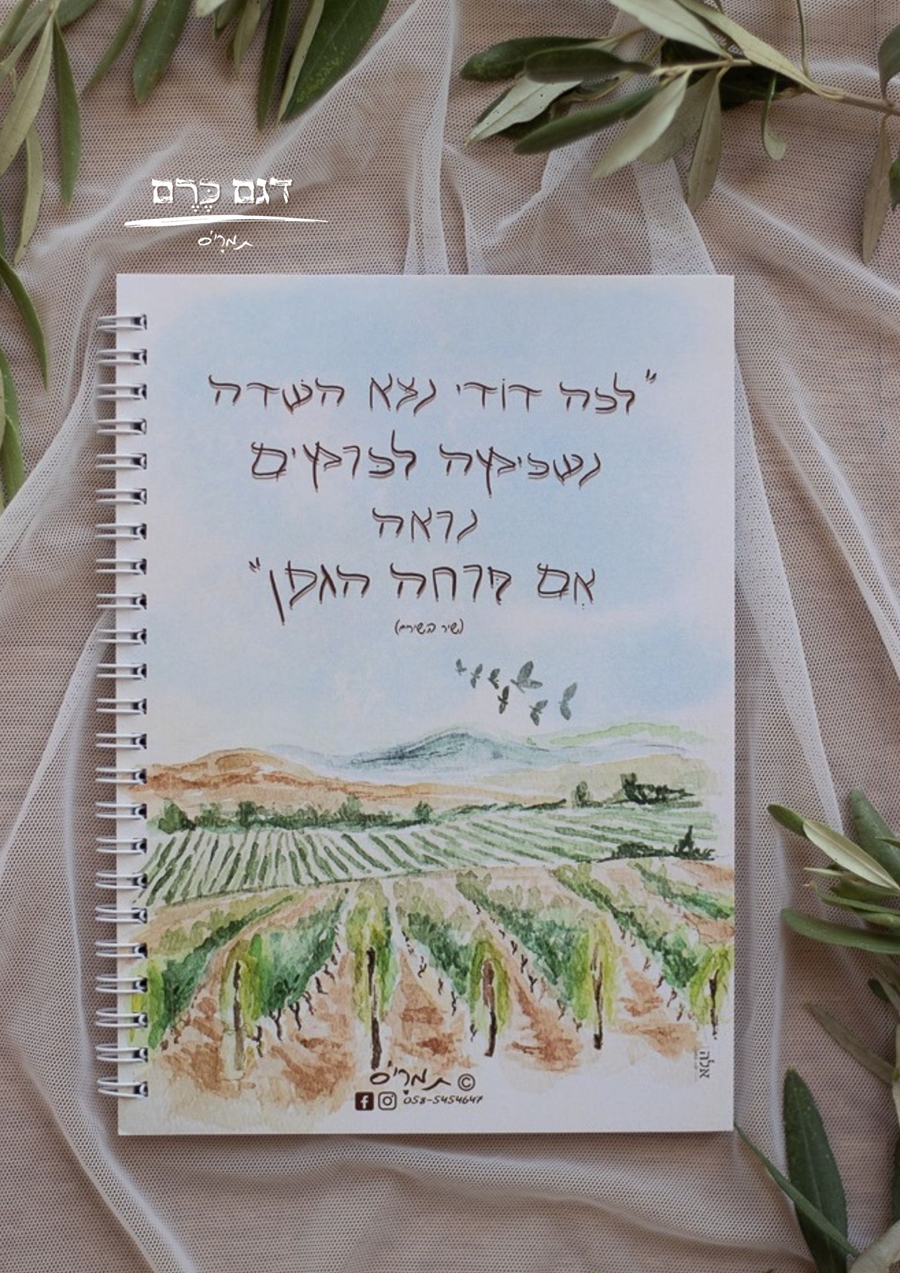 דגם כֶּרֶם
תמרי'ס
"לכה דוֹדי נצא השדה
נשכימה לכרמים
נראה
אִם פרחה הגפן"
(שיר השירים)
תמרי'ס ©
058-5454647
אלה